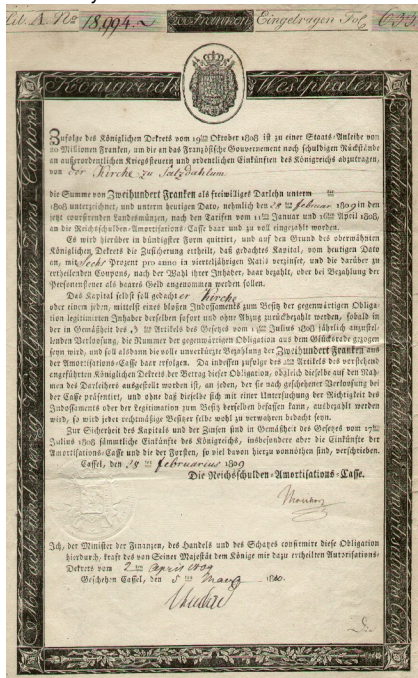 Lit. A. No 18,994.
200 Franken Eingetragen Fol. 633
Königreich Westphalen
Zufolge des Königlichen Dekrets vom 19ten Oktober 1808 ist zu einer Staats-Anleihe von
20 Millionen Franken, um die an das Französische Gouvernement noch schuldigen Rückstände
an außerordentlichen Kriegssteuern und ordentlichen Einkünften des Königreichs abzutragen,
von der Kirche zu Salzdahlum
die Summe von Zweihundert Franken als freiwilliges Darlehn unterm ten
1808 unterzeichnet, und unterm heutigen Dato, nehmlich den 28 ten februar 1809 in den
jetzt coursirenden Landesmünzen, nach den Tarifen vom 11ten Januar und 16ten April 1808,
an die Reichsschulden-Amortisations-Casse baar und zu voll eingezahlt worden.
Es wird hierüber in bündigster Form quittirt, und auf den Grund des oberwähnten
Königlichen Dekrets die Zusicherung ertheilt, daß gedachtes Kapital, vom heutigen Dato
an, mit Sechs Prozent pro anno in vierteljährigen Ratis verzinset, und die darüber zu
ertheilenden Coupons, nach der Wahl ihrer Inhaber, baar bezahlt, oder bei Bezahlung der
Personensteuer als baares Geld angenommen werden sollen.
Das Kapital selbst soll gedachter Kirche
oder einem jeden, mittelst eines bloßen Indossaments zum Besitz der gegenwärtigen Obliga-
tion legitimirten Inhaber derselben sofort und ohne Abzug zurückbezahlt werden, sobald in
der in Gemäßheit des 3 ten Artikels des Gesetzes vom Julius 1808 jährlich anzustel-
lenden Verloosung, die Nummer der gegenwärtigen Obligation aus dem Glücksrade gezogen
seyn wird, und soll alsdann die volle unverkürzte Bezahlung der Zweihundert Franken aus
der Amortisations-Casse baar erfolgen. Da indessen zufolge des Artikels des vorstehend
angeführten Königlichen Dekrets der Betrag dieser Obligation, obgleich dieselbe auf den Nah-
men des Darleihers ausgestellt worden ist, an jeden, der sie nach geschehener Verloosung bei
der Casse präsentirt, und ohne daß dieselbe sich mit einer Untersuchung der Richtigkeit des
Indossaments oder der Legitimation zum Besitz derselben befassen kann, ausbezahlt werden
wird, so wird jeder rechtmäßige Besitzer selbe wohl zu verwahren bedacht seyn.
Zur Sicherheit des Kapitals und der Zinsen sind in Gemäßheit des Gesetzes vom 17ten
Julius 1808 sämmtliche Einkünfte des Königreichs, insbesondere aber die Einkünfte der
Amortisations-Casse und die der Forsten, so viel davon hierzu vonnöthen sind, verschrieben.
Cassel, den 28 ten februarius 1809
Die Reichsschulden-Amortisations-Casse.
Ich, der Minister der Finanzen, des Handels und des Schatzes confirmire diese Obligation
hierdurch, kraft des von Seiner Majestät dem Könige mir dazu ertheilten Autorisations-
Dekrets vom 2 ten April 1809
Geschehen Cassel, den 5 ten 1810.